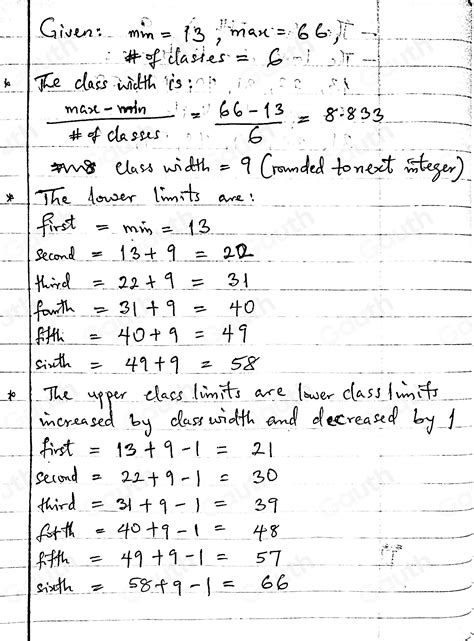 Given: min = 13, max = 66,
# of classes = 6
* The class width is:
max - min / # of classes = 66 - 13 / 6 = 8.833
class width = 9 (rounded to next integer)
* The lower limits are:
first = min = 13
second = 13 + 9 = 22
third = 22 + 9 = 31
fourth = 31 + 9 = 40
fifth = 40 + 9 = 49
sixth = 49 + 9 = 58
* The upper class limits are lower class limits
increased by class width and decreased by 1
first = 13 + 9 - 1 = 21
second = 22 + 9 - 1 = 30
third = 31 + 9 - 1 = 39
= 40 + 9 - 1 = 48
fifth = 49 + 9 - 1 = 57
sixth = 58 + 9 - 1 = 66